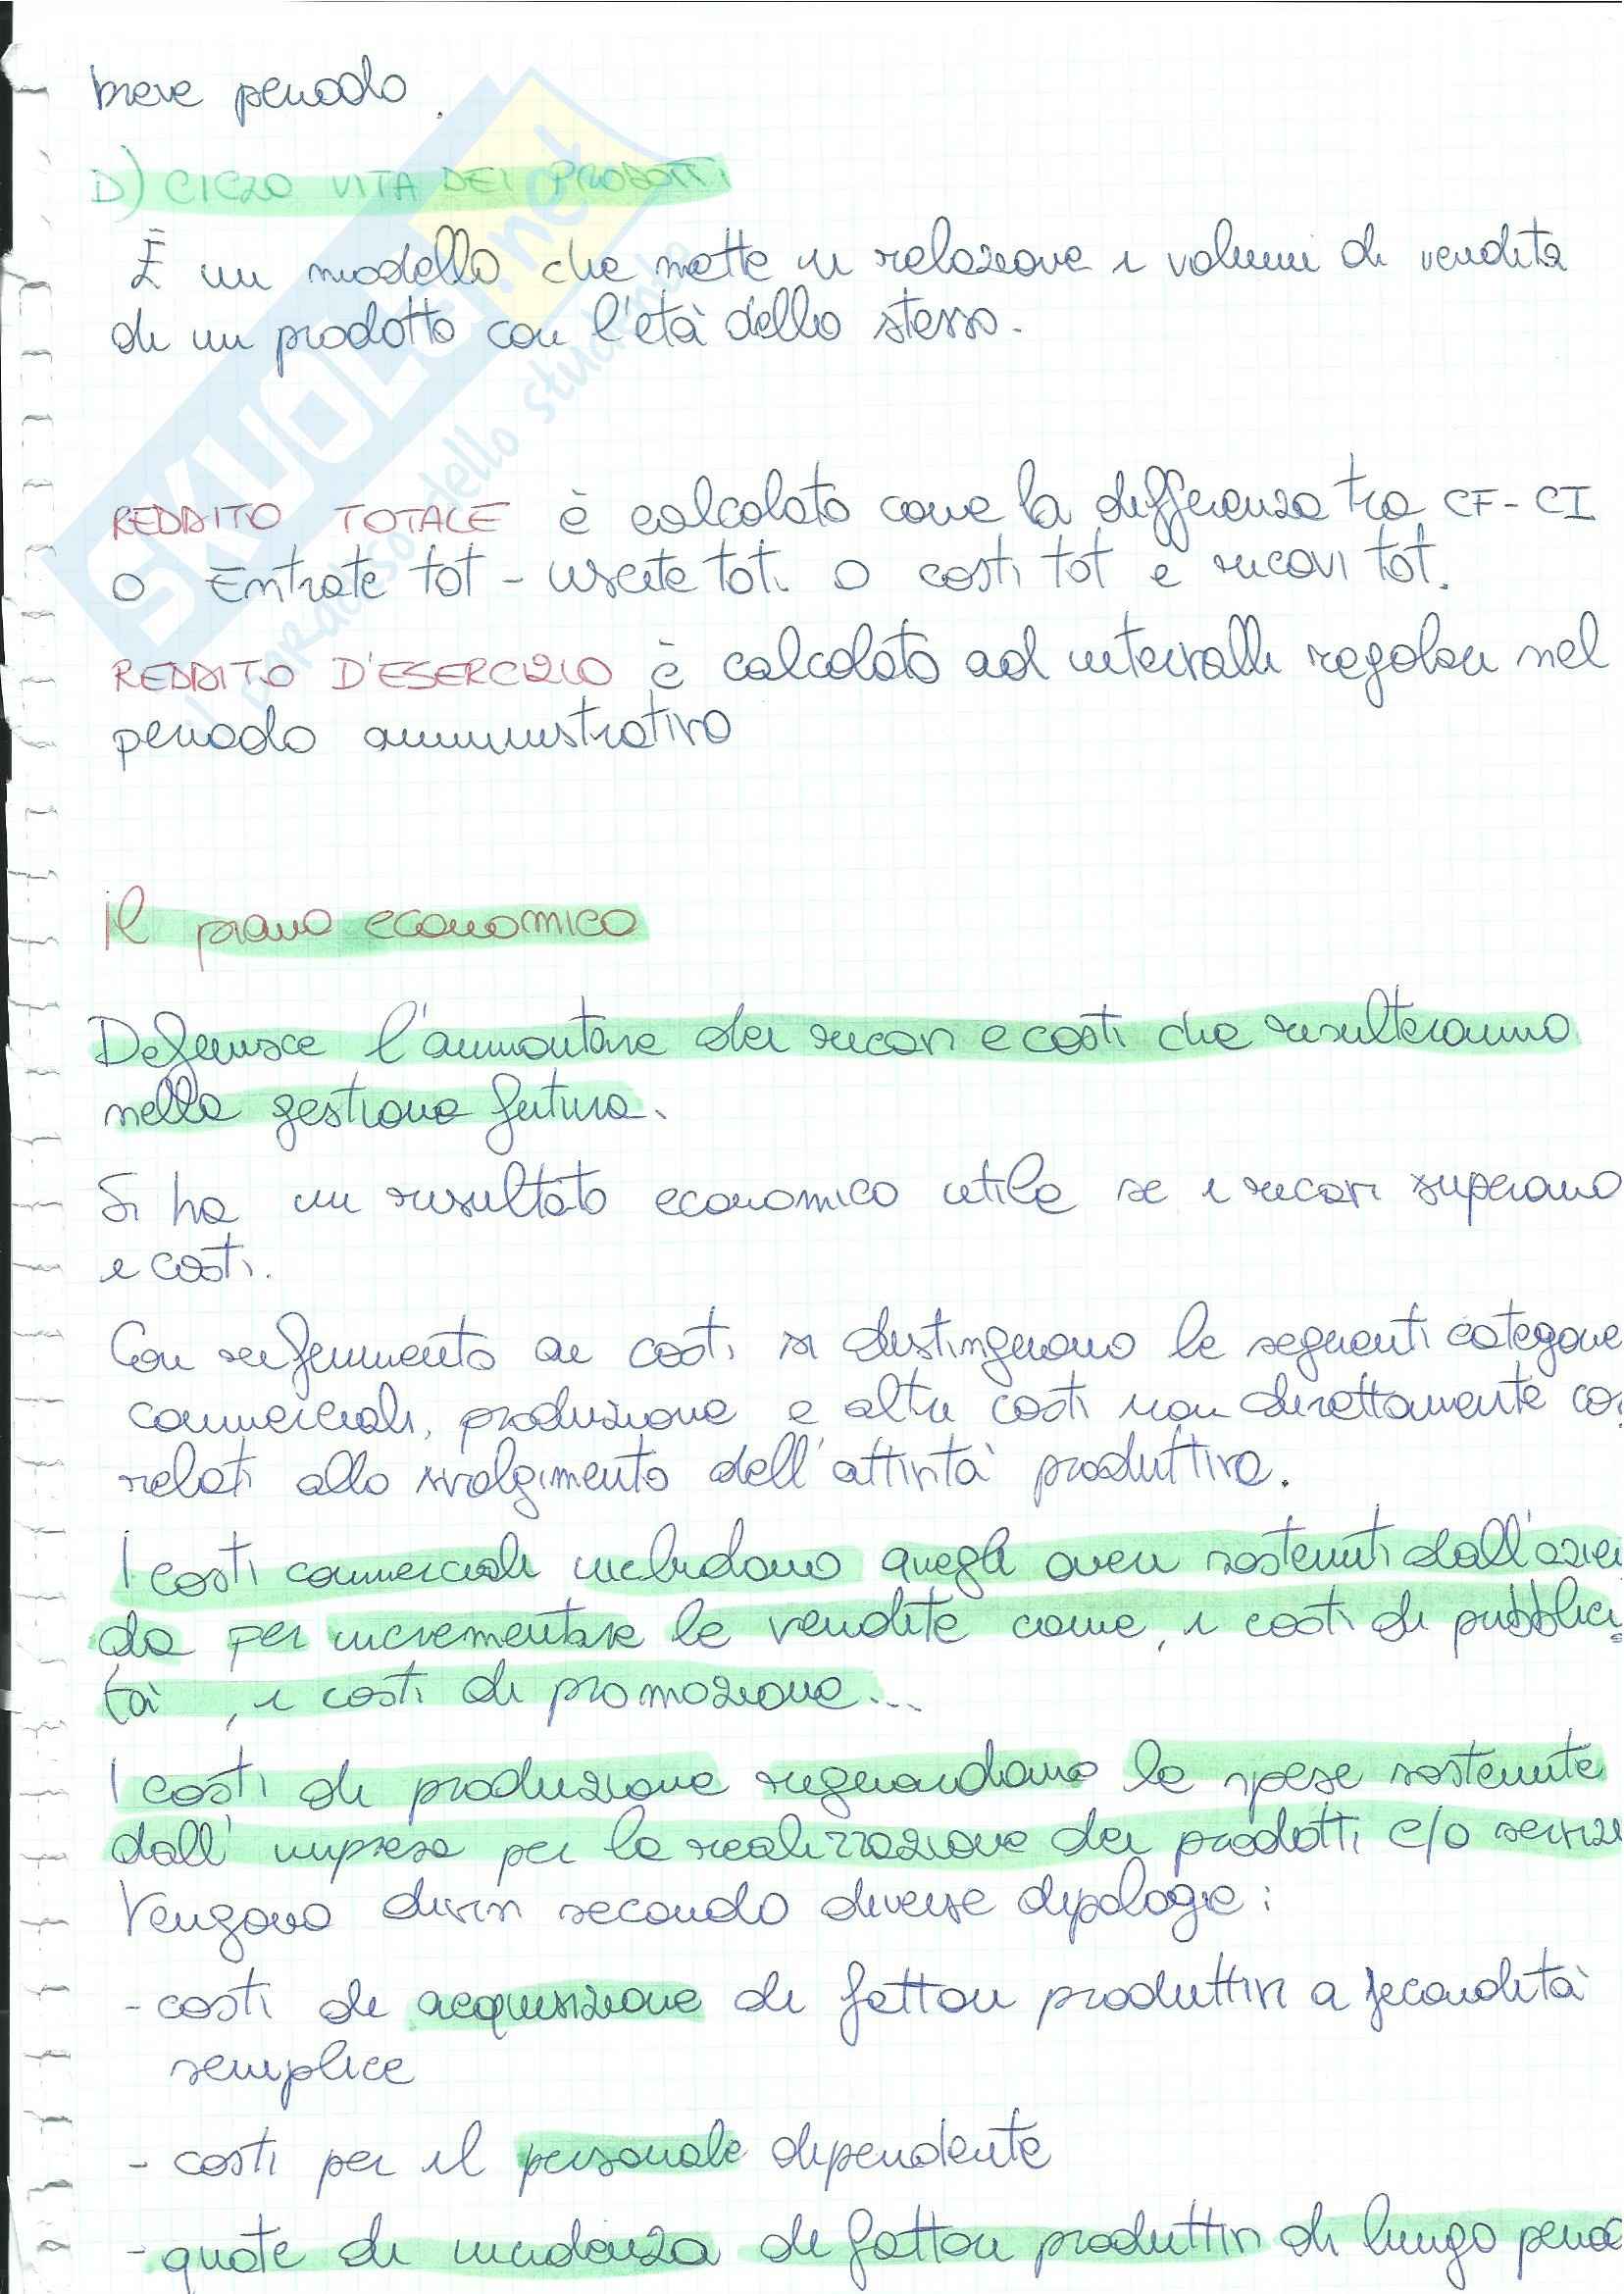 breve periodo.
D) CICLO VITA DEI PRODOTTI
È un modello che mette in relazione i volumi di vendita
di un prodotto con l'età dello stesso.
REDDITO TOTALE è calcolato come la differenza tra CF-CI
o Entrate tot - uscite tot. o costi tot e ricavi tot.
REDDITO D'ESERCIZIO è calcolato ad intervalli regolari nel
periodo amministrativo
Il piano economico
Definisce l'ammontare dei ricavi e costi che risulteranno
nella gestione futura.
Si ha un risultato economico utile se i ricavi superano
i costi.
Con riferimento ai costi si distinguono le seguenti categorie
commerciali, produzione e altri costi non direttamente cor
relati allo svolgimento dell'attività produttiva.
I costi commerciali includono quegli oneri sostenuti dall'azien
da per incrementare le vendite come, i costi di pubblici
tà, i costi di promozione...
I costi di produzione riguardano le spese sostenute
dall'impresa per la realizzazione dei prodotti e/o servizi
Vengono divisi secondo diverse tipologie:
- costi di acquisizione di fattori produttivi a fecondità
semplice
- costi per il personale dipendente
- quote di incidenza di fattori produttivi di lungo perio
SKUOLA.net
il paradiso dello studente